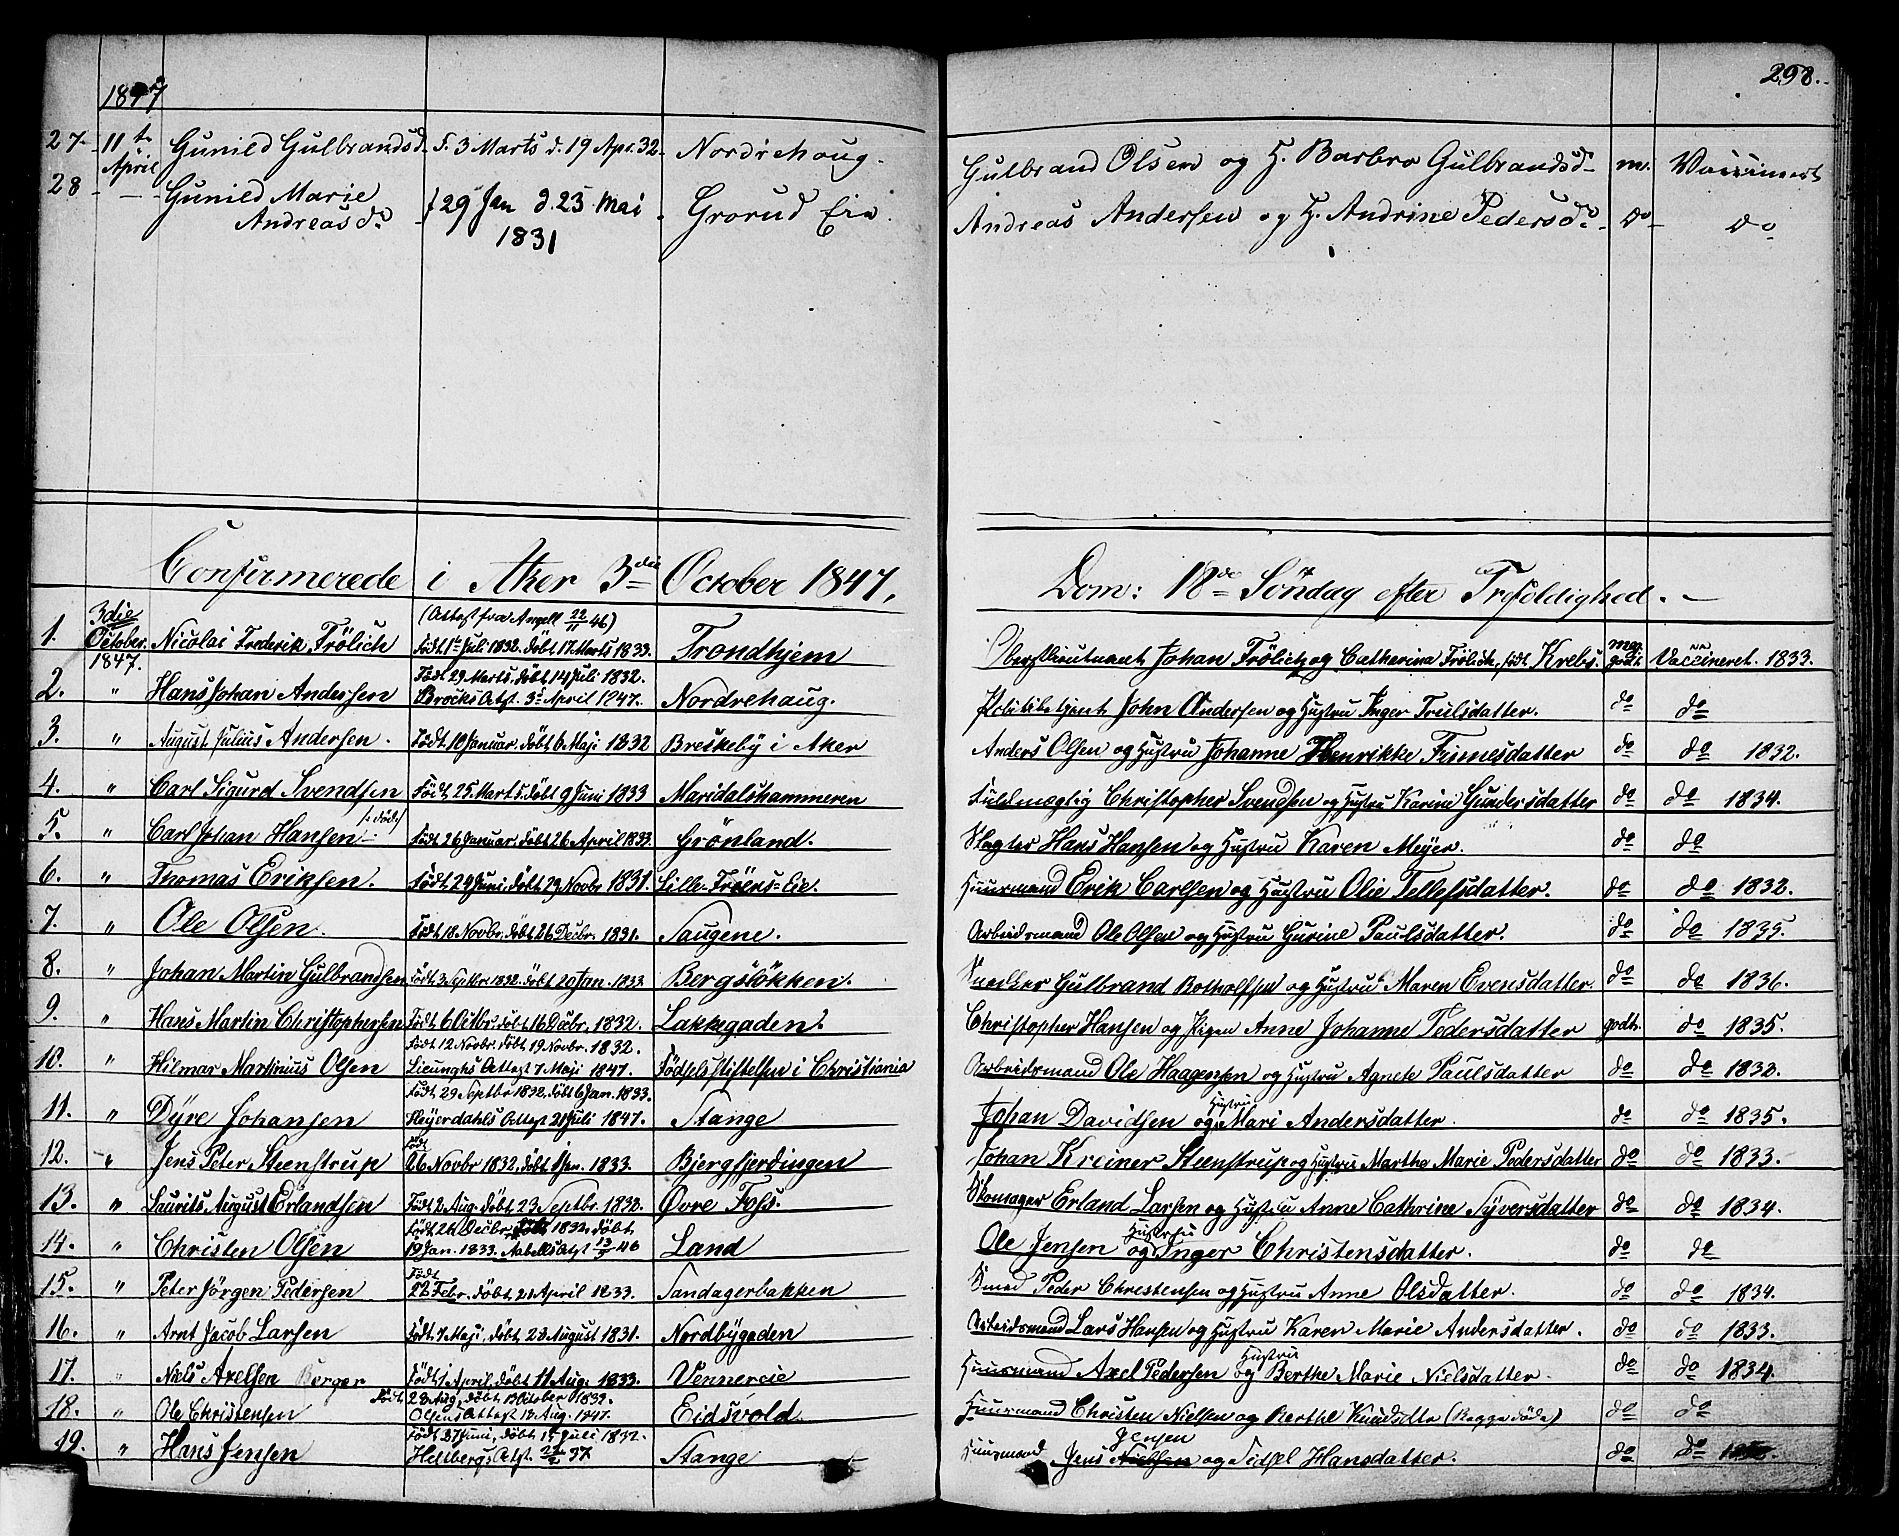 298.
1847
27. 11te April Gunild Gulbrandsd. f. 3 Marts d. 19 Apr. 32. Nordrehoug. Gulbrand Olsen og H. Barbro Gulbrandsd. m. Vaccinert
28 — Gunild Marie f 29 Jan d. 23 Mai Grorud Eie. Andreas Andersen og H. Andrine Pedersd. do do
Andreasd. 1831
Confirmerede i Aker 3die October 1847. Dom: 18de Söndag efter Trefoldighed.
1. 3die October 1847. Nicolai Frederik Frölich (Attest fra Angell 22/11 46) Födt 1 Juli 1832. döbt 17 Marts 1833. Trondhjem Oberstlieutnant Johan Frölich og Catharina Frölich, födt Krebs. meg. godt. Vaccineret. 1833.
2. " Hans Johan Andersen Födt 29 Marts. döbt 14 Juli 1832. Brocks Attst. 3 April 1847. Nordrehaug. Politibetjent John Andersen og Hustru Inger Trulsdatter. do do
3. " August Julius Andersen. Födt 10 Januar. döbt 6 Maji 1832 Breskeby i Aker Anders Olsen og Hustru Johanne Henrikke Finnesdatter do do 1832.
4. " Carl Sigurd Svendsen Födt 25 Marts. döbt 9 Juni 1833 Maridalshammeren Fuldmægtig Christopher Svendsen og Hustru Karine Gundersdatter do do 1834.
5. " Carl Johan Hansen Födt 26 Januar. döbt 26 April 1833. Grönland. Slagter Hans Hansen og Hustru Karen Meyer. do do
6. " Thomas Eriksen. Födt 29 Juni, döbt 29 Novbr 1831. Lille-Fröens-Eie. Huusmand Erik Carlsen og Hustru Olie Tellefsdatter. do do 1832.
7. " Ole Olsen. Födt 18 Novbr. döbt 26 Decbr. 1831. Saugene. Arbeidsmand Ole Olsen og Hustru Gurine Paulsdatter. do do 1835.
8. " Johan Martin Gulbrandsen Födt 3 Septbr. 1832. döbt 20 Jan. 1833. Bergslökken. Snedker Gulbrand Botholfsen og Hustru Maren Evensdatter. do do 1836.
9. " Hans Martin Christophersen Födt 6 Octbr, döbt 16 Decbr, 1832. Lakkegaden. Christopher Hansen og Pigen Anne Johanne Pedersdatter godt. do 1835.
10. " Hilmar Martinius Olsen Födt 12 Novbr. döbt 19 Novbr. 1832. Attest 7 Maji 1847. Födselsstiftelsen i Christiania Arbeidsmand Ole Haagensen og Hustru Agnete Paulsdatter do do 1832.
11. " Dyre Johansen Födt 29 Septbr 1832, döbt 6 Jan. 1833. Heyerdahls Attest 21 Juli 1847. Stange Johan Davidsen og Hustru Mari Andersdatter. do do 1835.
12. " Jens Peter Steenstrup Födt 26 Novbr 1832, döbt 1 Jan. 1833. Bjergfjerdingen Johan Kreiner Steenstrup og Hustru Marthe Marie Pedersdatter do do 1833.
13. " Laurits August Erlandsen Födt 2 Aug. döbt 23 Septbr. 1832. Øvre Foss. Skomager Erland Larsen og Hustru Anne Cathrine Syversdatter do do 1834.
14. " Christen Olsen Födt 26 Decbr 1832, döbt 19 Jan. 1833. Aabells Attst 13/5 46 Land Ole Jensen og Hustru Inger Christensdatter. do do
15. " Peter Jörgen Pedersen Födt 22 Febr. döbt 21 April 1833. Sandagerbakken Smed Peder Christensen og Hustru Anne Olsdatter. do do 1834.
16. " Arnt Jacob Larsen Födt 7 Maji, döbt 28 August 1831. Nordbygaden Arbeidsmand Lars Hansen og Hustru Karen Marie Andersdatter. do do 1833.
17. " Niels Axelsen Berger Födt 1 April, döbt 11 Aug. 1833. Vennereie Huusmand Axel Pedersen og Hustru Berthe Marie Nielsdatter. do do 1834.
18. " Ole Christensen Födt 28 Aug. döbt 13 October 1832. Olsens Attest 12 Aug. 1847. Eidsvold. Huusmand Christen Nielsen og Berthe Knudsdtr (Begge döde) do do
19. " Hans Jensen Födt 27 Juni, döbt 15 Juli 1832. Heltbergs Attst. Stange Huusmand Jens Jensen og Sidsel Hansdatter. do do